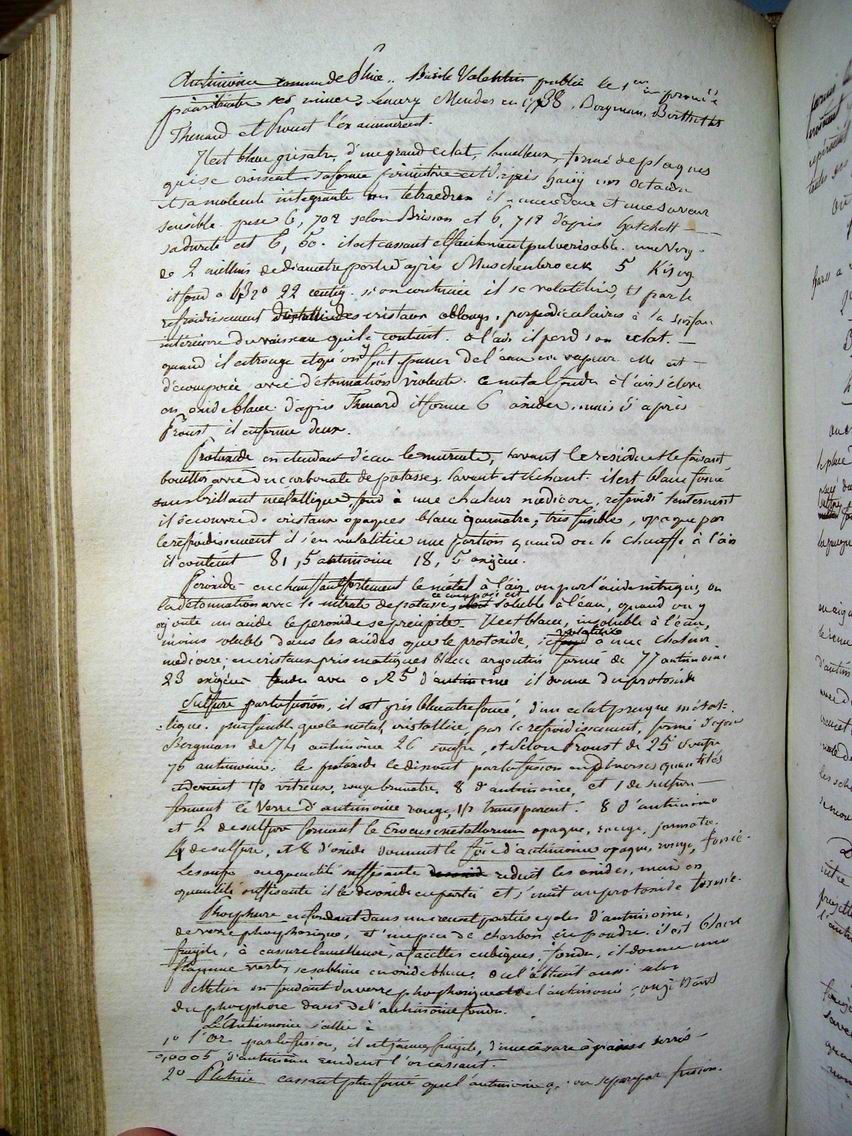 Antimoine connu de Pline. Basile Valentin publia le 1er
pour traiter ses mines, Lemery Mender en 1738, Bergman, Berthollet
Thenard et Proust l'examinerent.
Il est blanc grisatre, d'un grand eclat, lamelleux, formé de plaques
qui se croisent. sa forme primitive est d'après haüy un octaedre
et sa molecule integrante un tetraedre il a une odeur et une saveur
sensible. pese 6,702 selon Brisson et 6,712 d'après hatchett
sa dureté est 6,50. il est cassant et facilement pulverisable. une verge
de 2 millim de diametre porte d'après Muschenbroeck 5 Kilog.
il fond a 22 centig. si on continue il se volatilise, et par le
refroidissement des cristaux oblongs, perpendiculaires à la surface
interieure du vaisseau qui le contient. a l'air il perd son eclat.
quand il est rouge et qu'on y fait passer de l'eau en vapeur elle est
decomposée avec detonnation violente. ce metal fondu à l'air s'eleve
en oxide blanc. d'après Thenard il forme 6 oxides, mais d'après
Proust il en forme deux.
Protoxide en etendant d'eau le muriate, lavant le residu et le faisant
bouillir avec du carbonate de potasse, lavant et sechant. il est blanc foncé
sans brillant metallique, fond à une chaleur mediocre, refroidi lentement
il se couvre de cristaux opaques blanc jaunatre; très fusible, opaque par
le refroidissement il s'en volatilise une portion quand on le chauffe à l'air
il contient 81,5 antimoine 18,5 oxigene.
Peroxide en chauffant fortement le metal à l'air ou par l'acide nitrique, ou
la detonnation avec le nitrate de potasse, ce composé est soluble à l'eau, quand on y
ajoute un acide le peroxide se precipite. Il est blanc, insoluble à l'eau,
moins soluble dans les acides que le protoxide, il se volatilise à une chaleur
mediocre; en cristaux prismatiques blanc argentin formé de 77 antimoine
23 oxigene fondu avec 0,25 d'antimoine il donne du protoxide
Sulfure par la fusion, il est gris bleuatre foncé, d'un eclat presque metal-
lique. plus fusible que le metal, cristallise par le refroidissement, formé d'après
Bergman de 74 antimoine 26 soufre, et selon Proust de 25 soufre
75 antimoine. le protoxide le dissout par la fusion en diverses quantités
et devient 1/2 vitreux, rouge brunatre, 8 d'antimoine, et 1 de sulfure
forment le Verre d'antimoine rouge, 1/2 transparent. 8 d'antimoine
et 2 de sulfure forment le Crocus metallorum opaque, rouge, jaunatre.
4 de sulfure, et 8 d'oxide donnent le foie d'antimoine opaque, rouge, foncé.
Le soufre en quantité suffisante reduit les oxides, mais en
quantité insuffisante il le desoxide en partie et s'unit au protoxide formé.
Phosphure en fondant dans un creuset parties egales d'antimoine,
de verre phosphorique, et un peu de charbon en poudre. il est blanc
fragile, à cassure lamelleuse, à facettes cubiques; fondu, il donne une
flamme verte, se sublime en oxide blanc. on l'obtient aussi selon
Pelletier en fondant du verre phosphorique et de l'antimoine, ou jettant
du phosphore dans de l'antimoine fondu.
L'Antimoine s'allie à
1° l'or par la fusion, il est jaune, fragile, d'une cassure à grains serrés
0,0005 d'antimoine rendent l'or cassant.
2° Platine cassant plus foncé que l'antimoine qu'on separe par fusion.